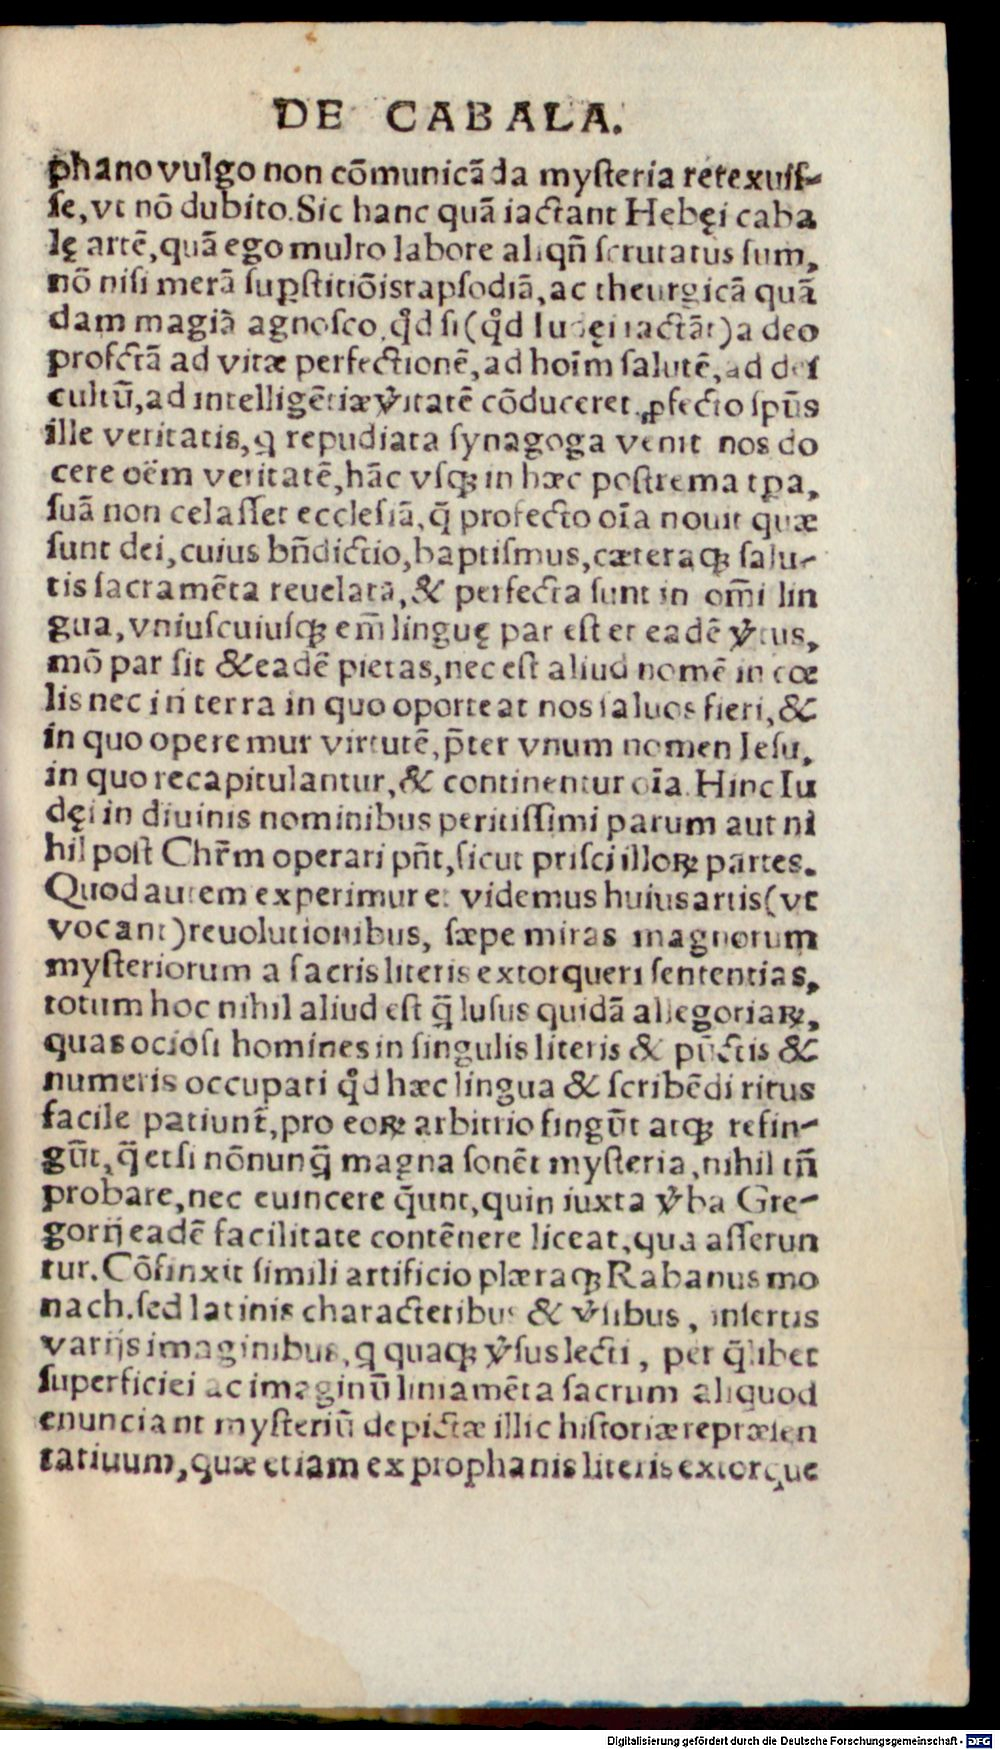 DE CABALA.
phano vulgo non cõmunicãda myſteria retexuiſ-
ſe, vt nõ dubito. Sic hanc quã iactant Hebęi caba
lę artẽ, quã ego multo labore aliqñ ſcrutatus ſum,
nõ niſi merã ſuꝑſtitiõis rapſodiã, ac theurgicã quã
dam magiã agnoſco, qd̓ ſi (qd̓ Iudęi iactãt) a deo
profctã ad vitæ perfectionẽ, ad hoĩm ſalutẽ, ad dei
cultũ, ad intelligẽtiæ v̓itatẽ cõduceret, ꝓfecto ſpũs
ille veritatis, q repudiata ſynagoga venit nos do
cere oẽm veritatẽ, hãc vſqꝫ in hæc poſtrema tꝑa,
ſuã non celaſſet eccleſiã, q̃ profecto oĩa nouit quæ
ſunt dei, cuius bñdictio, baptiſmus, cæteraqꝫ ſalu-
tis ſacramẽta reuelata, & perfecta ſunt in om̃i lin
gua, vniuſcuiuſqꝫ em̃ linguę par eſt et eadẽ v̓tus,
mõ par ſit & eadẽ pietas, nec eſt aliud nomẽ in cœ
lis nec in terra in quo oporteat nos ſaluos fieri, &
in quo operemur virtutẽ, p̃ter vnum nomen Ieſu,
in quo recapitulantur, & continentur oĩa. Hinc Iu
dęi in diuinis nominibus peritiſſimi parum aut ni
hil poſt Chr̃m operari pñt, ſicut priſci illoꝝ partes.
Quod autem experimur et videmus huius artis (vt
vocant) reuolutionibus, ſæpe miras magnorum
myſteriorum a ſacris literis extorqueri ſententias,
totum hoc nihil aliud eſt q̃ luſus quidã allegoriaꝝ,
quas ocioſi homines in ſingulis literis & pũctis &
numeris occupati qd̓ hæc lingua & ſcribẽdi ritus
facile patiunt̃, pro eoꝝ arbitrio fingũt atqꝫ refin-
gũt, q̃ etſi nõnunq̃ magna ſonẽt myſteria, nihil tñ
probare, nec euincere q̃unt, quin iuxta v̓ba Gre-
gorij eadẽ facilitate contẽnere liceat, qua aſſerun
tur. Cõfinxit ſimili artificio plæraqꝫ Rabanus mo
nach. ſed latinis characteribus & v̓ſibus, inſertis
varijs imaginibus, q quaqꝫ v̓ſus lecti, per q̃libet
ſuperficiei ac imaginũ liniamẽta ſacrum aliquod
enunciant myſteriũ depictæ illic hiſtoriæ repræſen
tatiuum, quæ etiam ex prophanis literis extorque
Digitalisierung gefördert durch die Deutsche Forschungsgemeinschaft - DFG